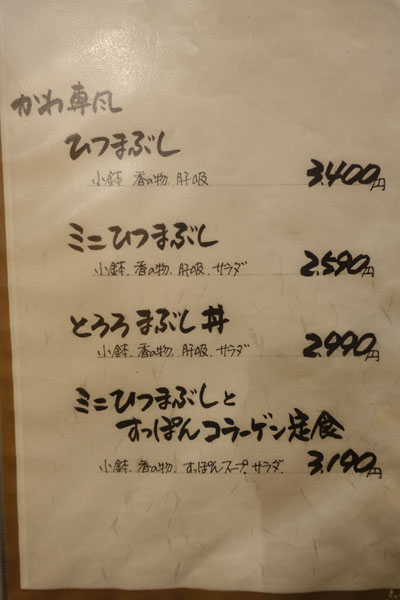 かわ専凡
ひつまぶし
小鉢 香の物 肝吸 3,400円
ミニひつまぶし
小鉢. 香の物. 肝吸. サラダ 2,590円
とろろまぶし丼
小鉢. 香の物. 肝吸. サラダ 2,990円
ミニひつまぶしと
すっぽんコラーゲン定食
小鉢. 香の物. すっぽんスープ. サラダ. 3,190円